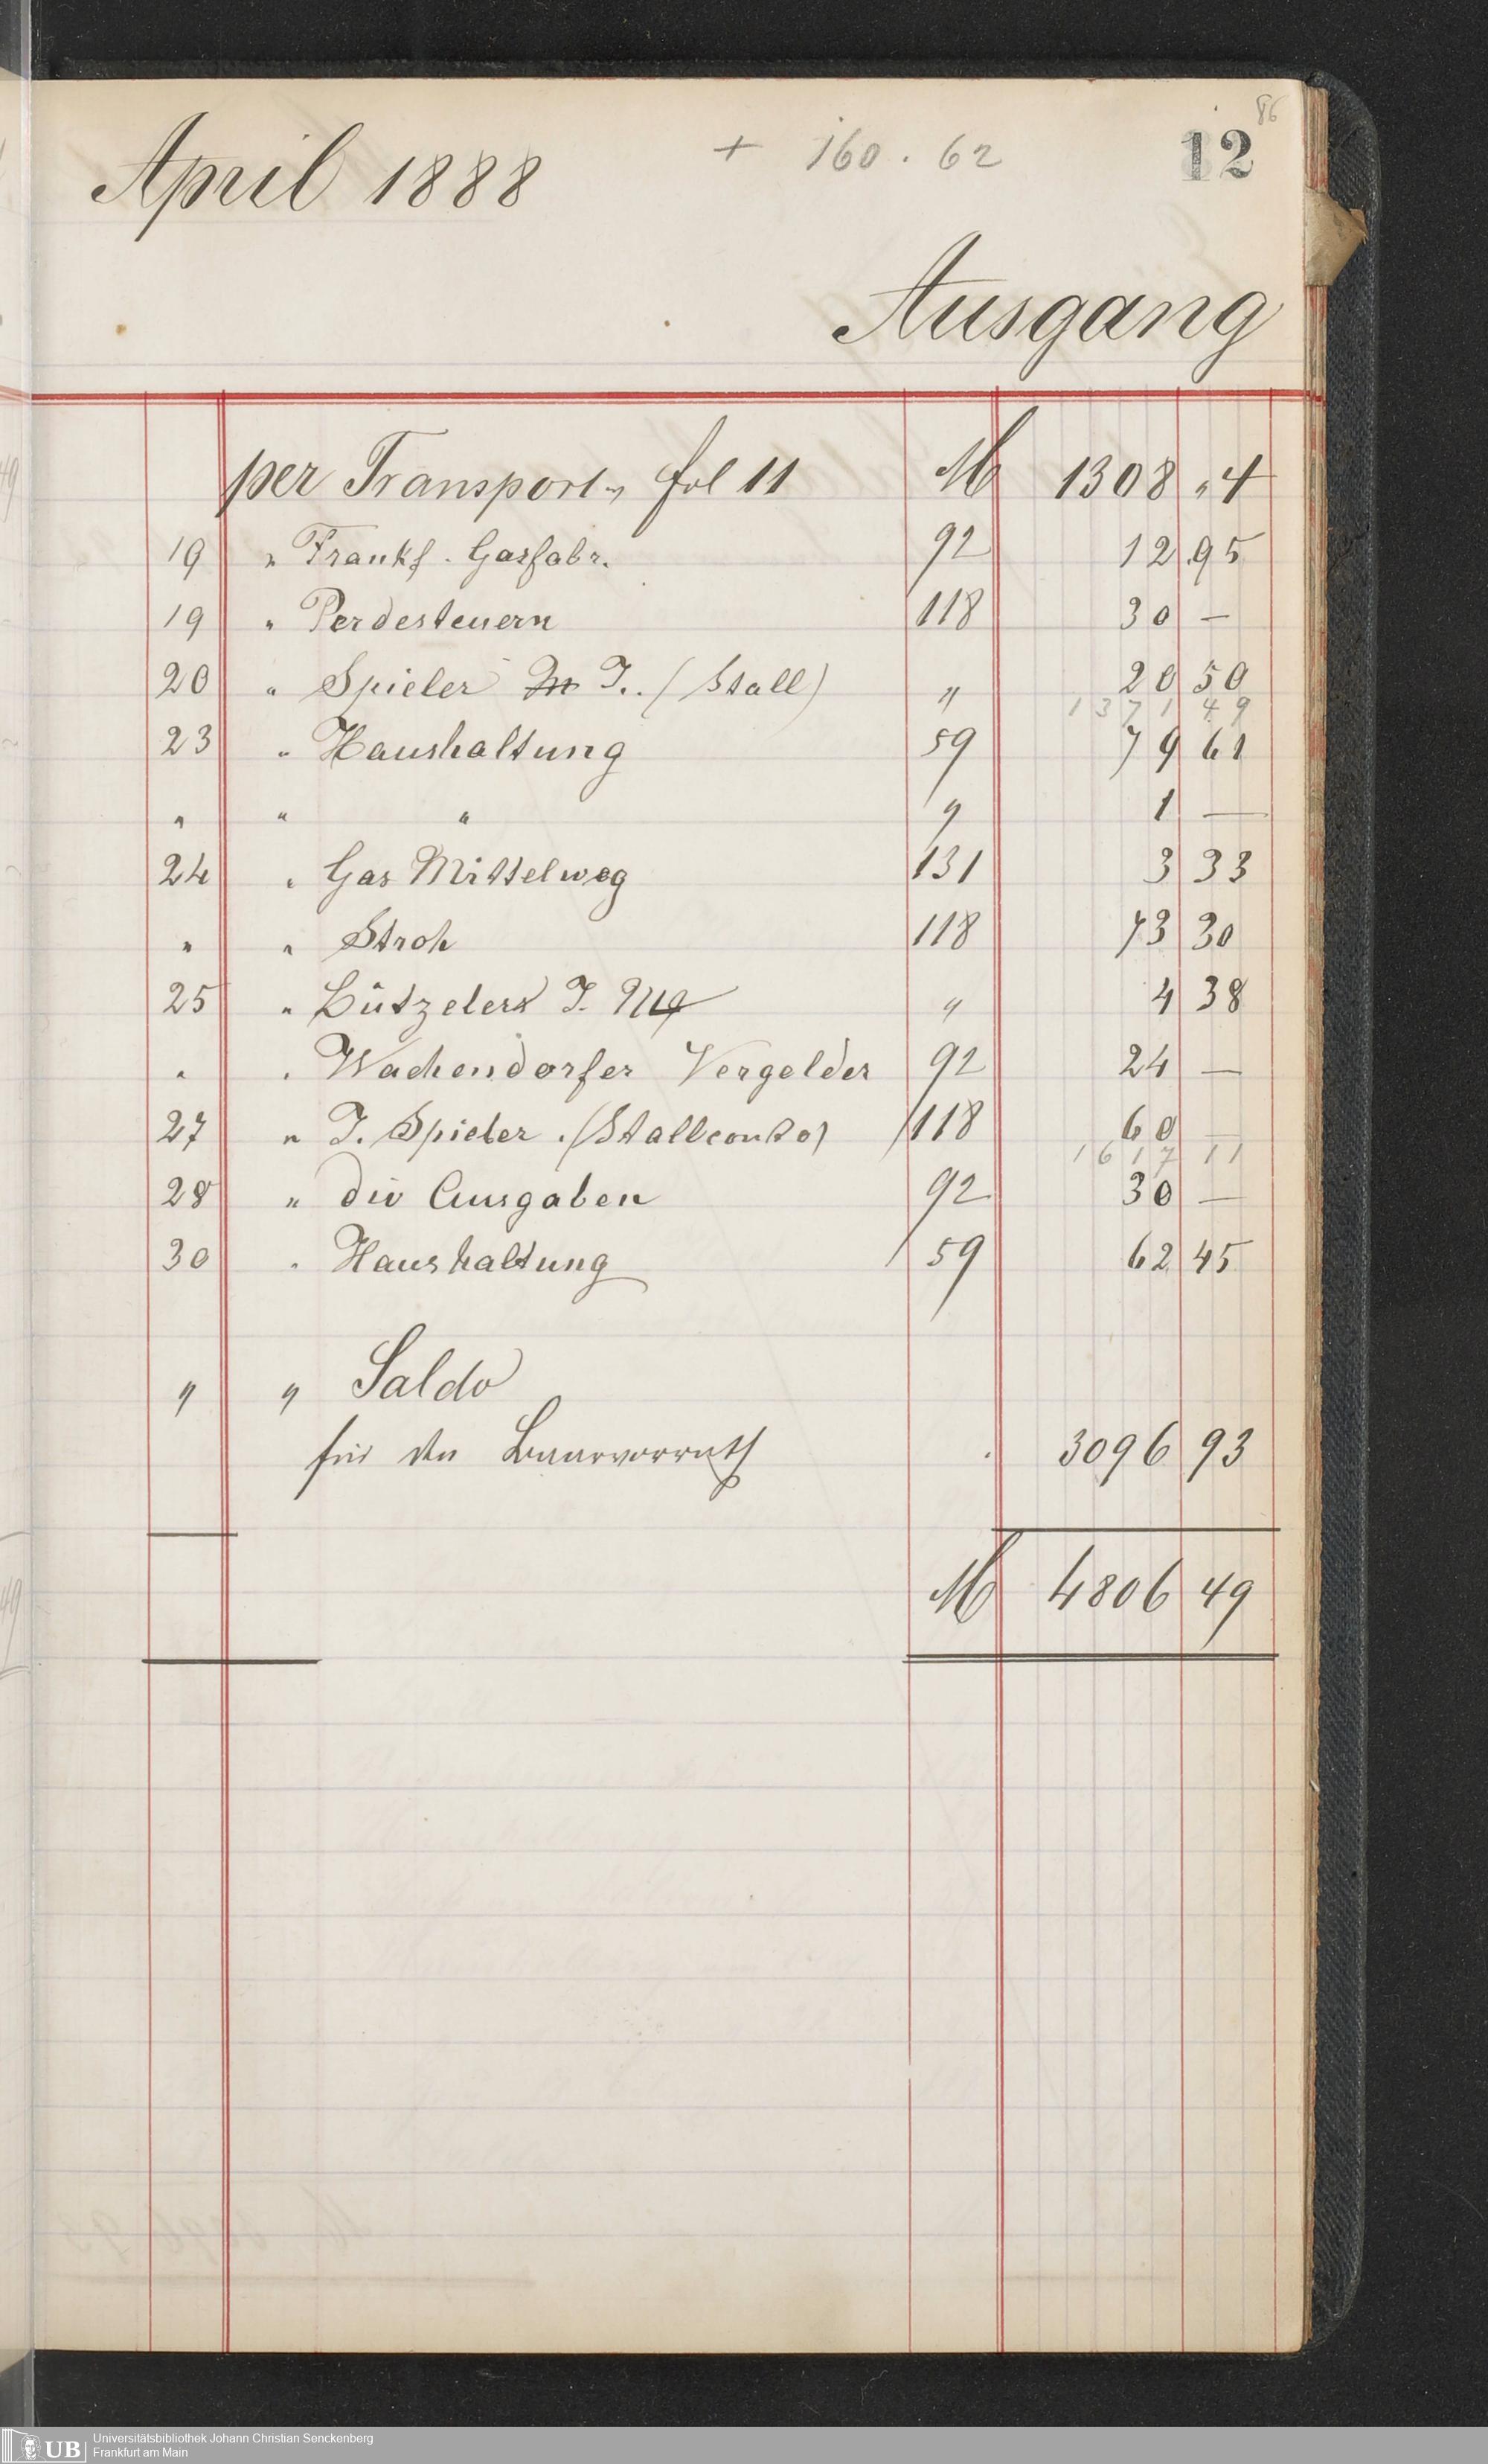 86
April 1888 + 160. 62 12
Ausgang
per Transport fol 11 M 1308 "4
19 " Frankf. Gasfabr. 92 12.95
19 " Perdesteuern 118 30 —
20 " Spieler J.. (Stall) " 20 50
1371 49
23 " Haushaltung 59 79 61
" " " " 1 —
24 " Gas Mittelweg 131 3 33
" " Stroh 118 73 30
25 " Lützelers J. " 4 38
" " Wachendorfer Vergelder 92 24 —
27 " J. Spieler. (Stallconto) 118 60 —
1617 11
28 " div Ausgaben 92 30 —
30 " Haushaltung 59 62 45
" " Saldo
für den Baarvorrath 3096 93
M 4806 49
UB Universitätsbibliothek Johann Christian Senckenberg
Frankfurt am Main